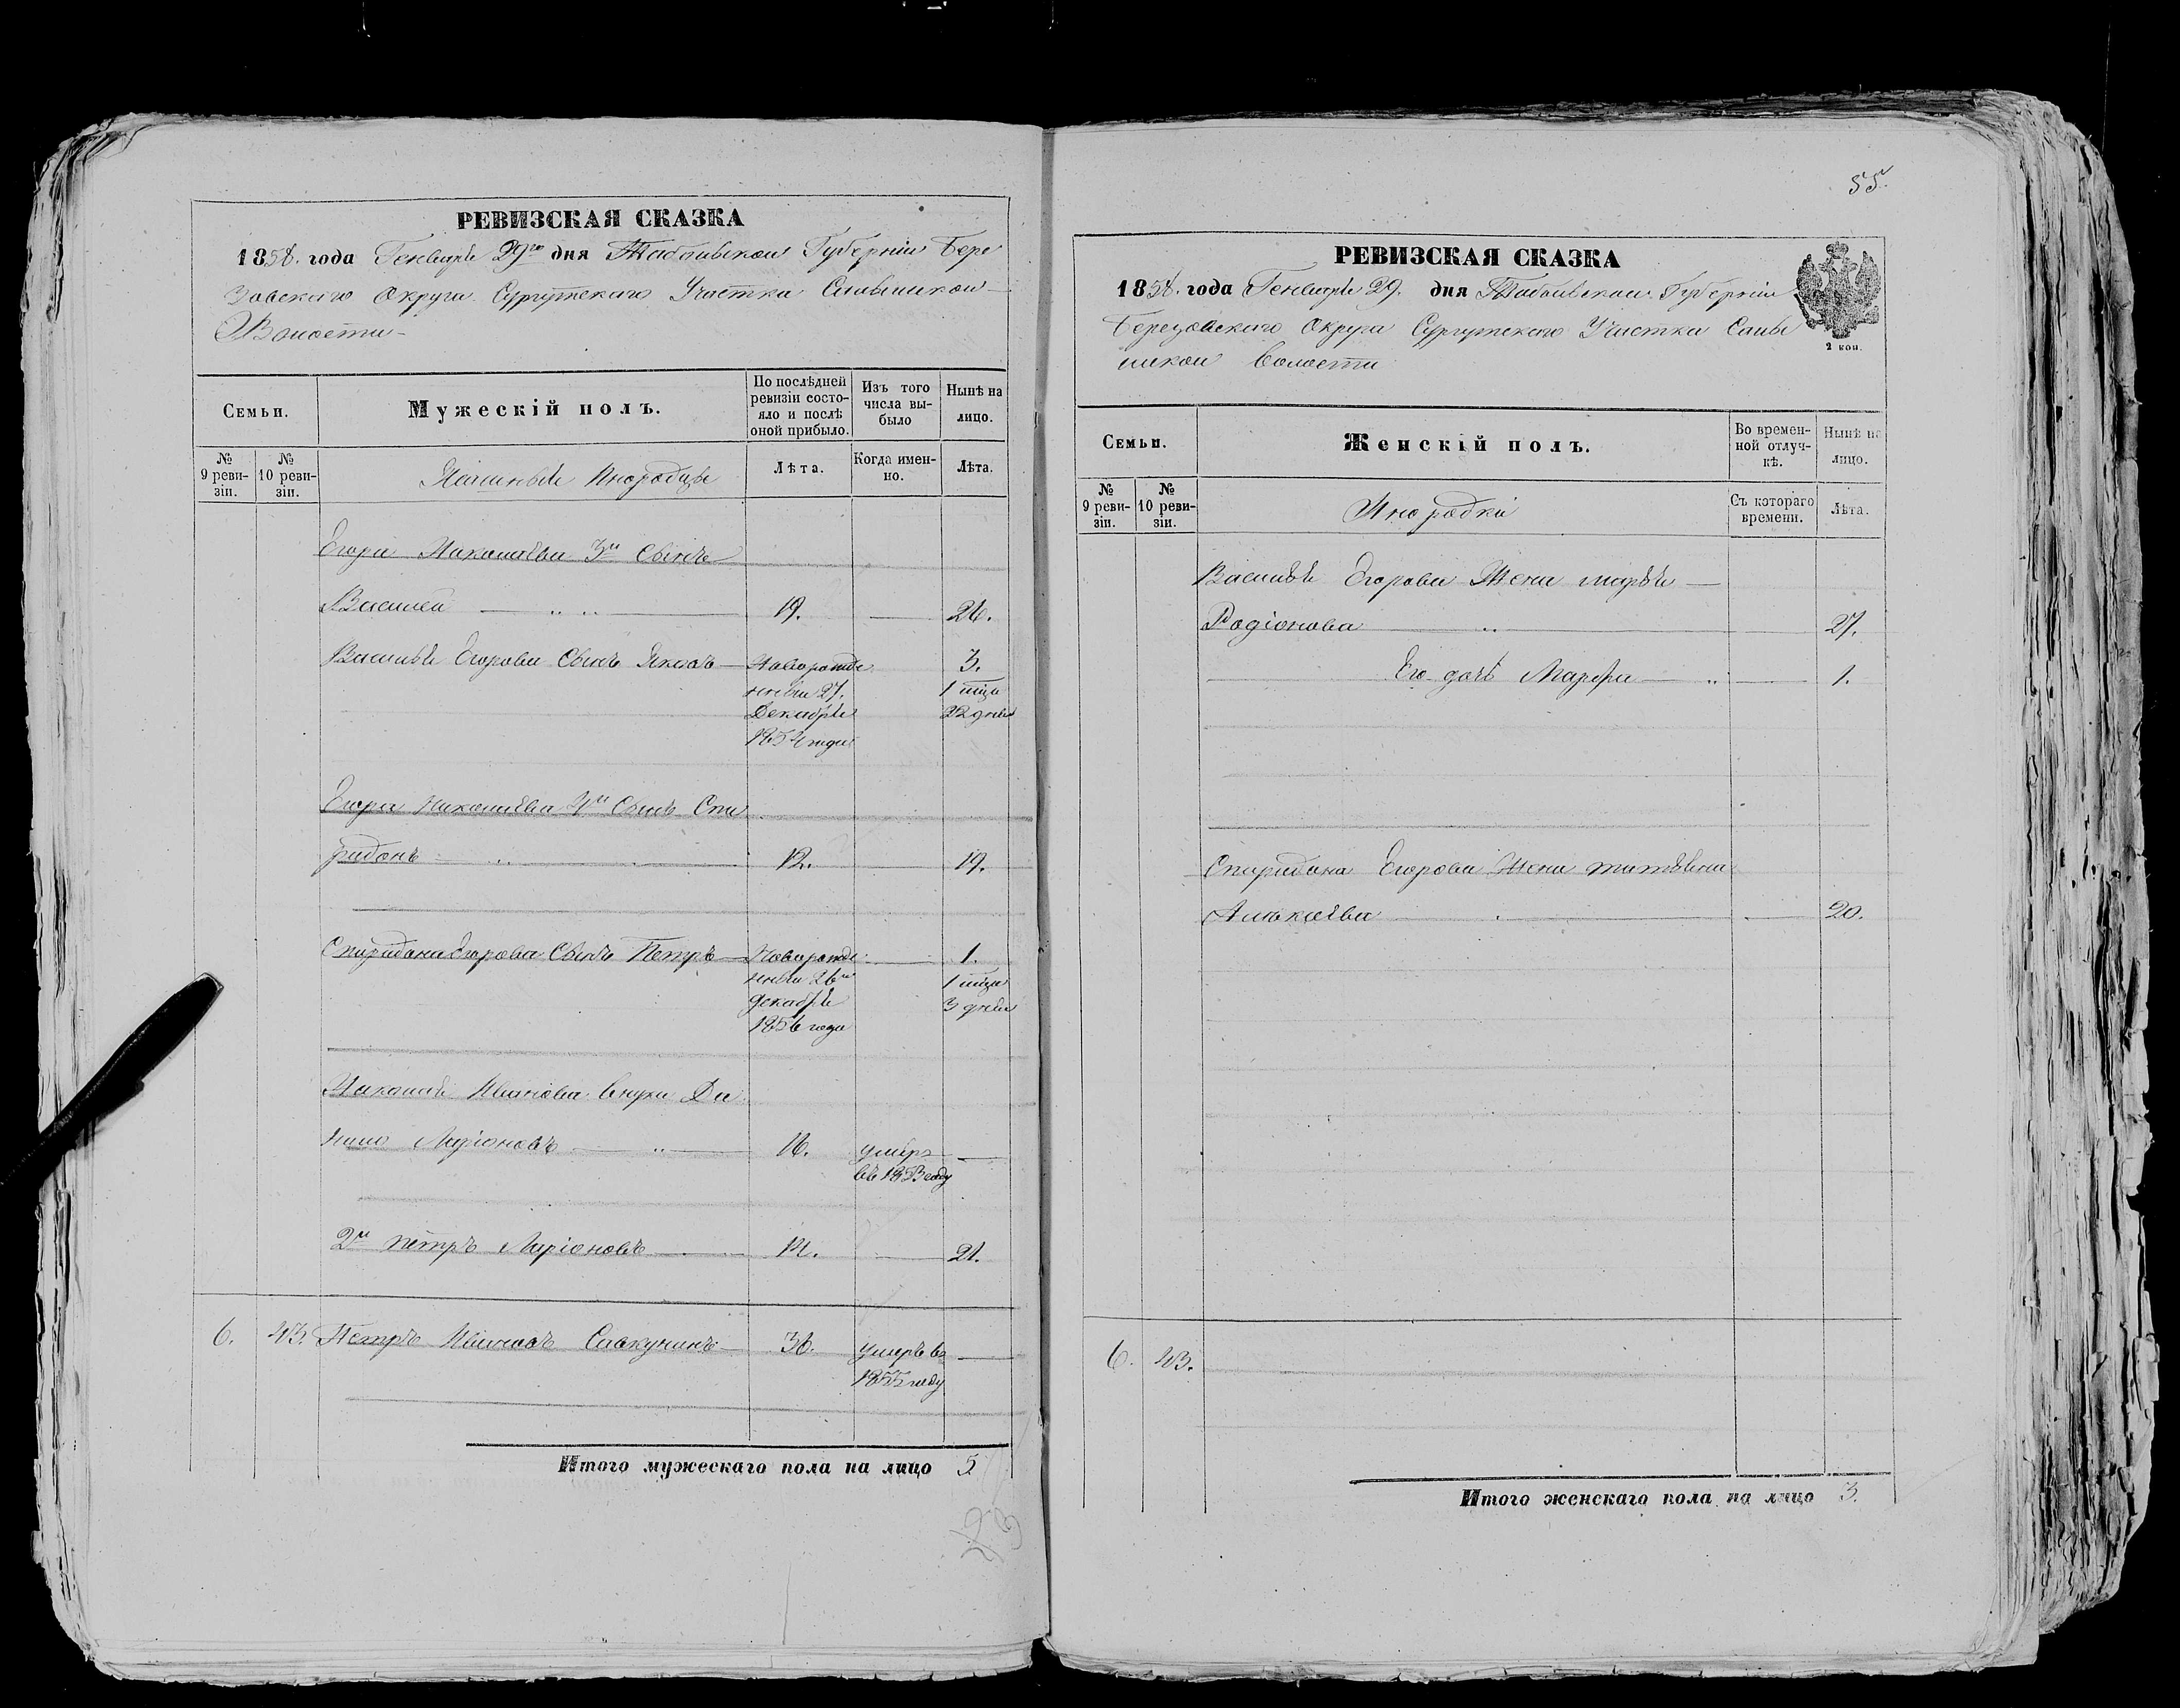 РЕВИЗСКАЯ СКАЗКА
1858. года Генваря 29го дня Тобольской Губерніи Бере
зовскаго Округа Сургутскаго Участка
Волости
Семьи.
Мужескій полъ.
По послѣдней ревизіи состояло и послѣ оной прибыло.
Изъ того числа выбыло
Нынѣ на лицо.
№ 9 ревизіи.
№ 10 ревизіи.
Ясашные Инородцы
Лѣта.
Когда именно.
Лѣта.
Егора Николаева 3й Сынъ
Василей 19. 26.
Василья Егорова Сынъ Яковъ Новорожде 3.
нный 27. 1 мца
Декабря 22 дней
1854 года
Егора Николаева 4й Сынъ Спи
ридонъ 12. 19.
Спиридона Егорова Сынъ Петръ Новорожде 1.
нный 26го 1 мца
декабря 3 дней
1856 года
Николая Иванова внуки Да
нило Ларіоновъ 16. умеръ
въ 1853 году
2й Петръ Ларіоновъ 14. 21.
6. 43. Петръ Ивановъ 36. умеръ въ
1855 году
Итого мужескаго пола на лицо 5.
55.
РЕВИЗСКАЯ СКАЗКА
1858. года Генваря 29. дня Тобольской Губерніи
Березовскаго Округа Сургутскаго Участка
волости
2 коп.
Семьи.
Женскій полъ.
Во временной отлучкѣ.
Нынѣ на лицо.
№ 9 ревизіи.
№ 10 ревизіи.
Инородки
Съ котораго времени.
Лѣта.
Василья Егорова Жена марья
Родіонова 27.
Его дочь Марфа 1.
Спиридона Егорова Жена
20.
6. 43.
Итого женскаго пола на лицо 3.